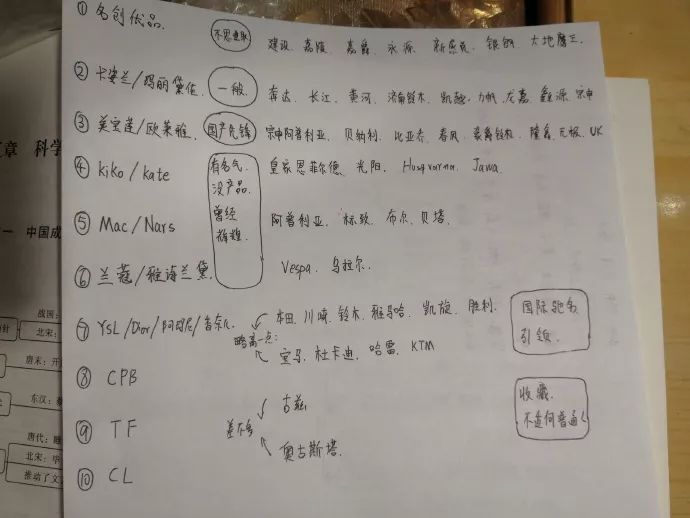 ① 名创优品. 不思进取 建设 嘉陵 嘉爵 永源 新感觉 银钢 大地鹰王
② 卡姿兰/玛丽黛佳 一般 奔达 长江 黄河 济南铃木 凯越 力帆 龙嘉 鑫源 宗申
③ 美宝莲/欧莱雅 国产先锋 宗申阿普利亚 贝纳利 比亚乔 春风 豪爵铃木 隆鑫 无极 UK
④ kiko/kate 有名气 没产品 曾经 辉煌 皇家恩菲尔德 光阳 Husqvarna Jawa
⑤ Mac/Nars 阿普利亚 标致 布尔 贝塔
⑥ 兰蔻/雅诗兰黛 Vespa 乌拉尔
⑦ YSL/Dior/阿玛尼/香奈儿 本田 川崎 铃木 雅马哈 凯旋 胜利
略高一点: 宝马 杜卡迪 哈雷 KTM
国际驰名
引领
⑧ CPB
⑨ TF 差不多 古兹
奥古斯塔
收藏
不适何普通人
⑩ CL
章 科学
一 中国成
战国:
北宋:
唐末: 开
东汉:
唐代: 雕
北宋: 毕
推动了文